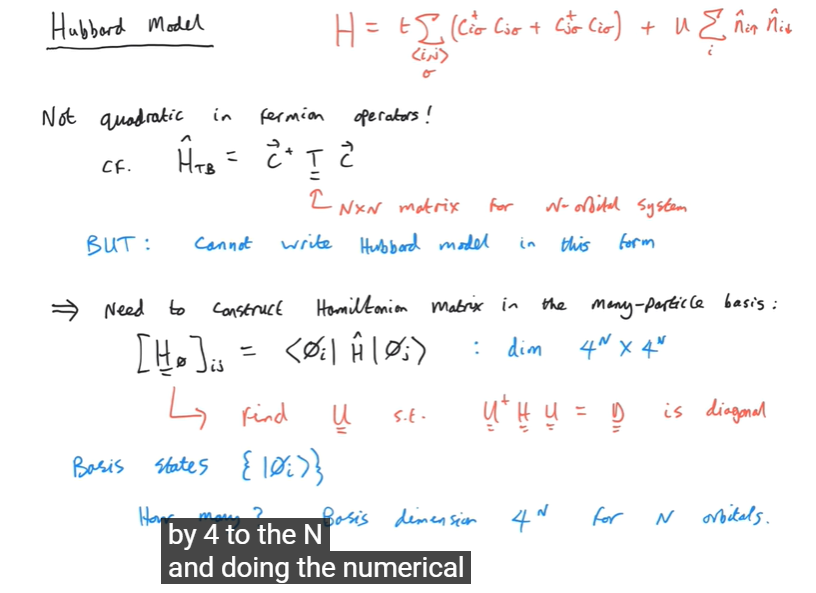 Hubbard Model
H = t Σ (c†iσ cjσ + c†jσ ciσ) + U Σ n̂i↑ n̂i↓
<i,j> σ i
Not quadratic in fermion operators!
cf. Ĥ_TB = c⃗† T c⃗
NxN matrix for N-orbital system
BUT: Cannot write Hubbard model in this form
⇒ Need to construct Hamiltonian matrix in the many-particle basis:
[H_ø]ij = <øi| Ĥ |øj> : dim 4^N x 4^N
Find U s.t. U† H U = D is diagonal
Basis states {|øi>}
How many? Basis dimension 4^N for N orbitals.
by 4 to the N
and doing the numerical